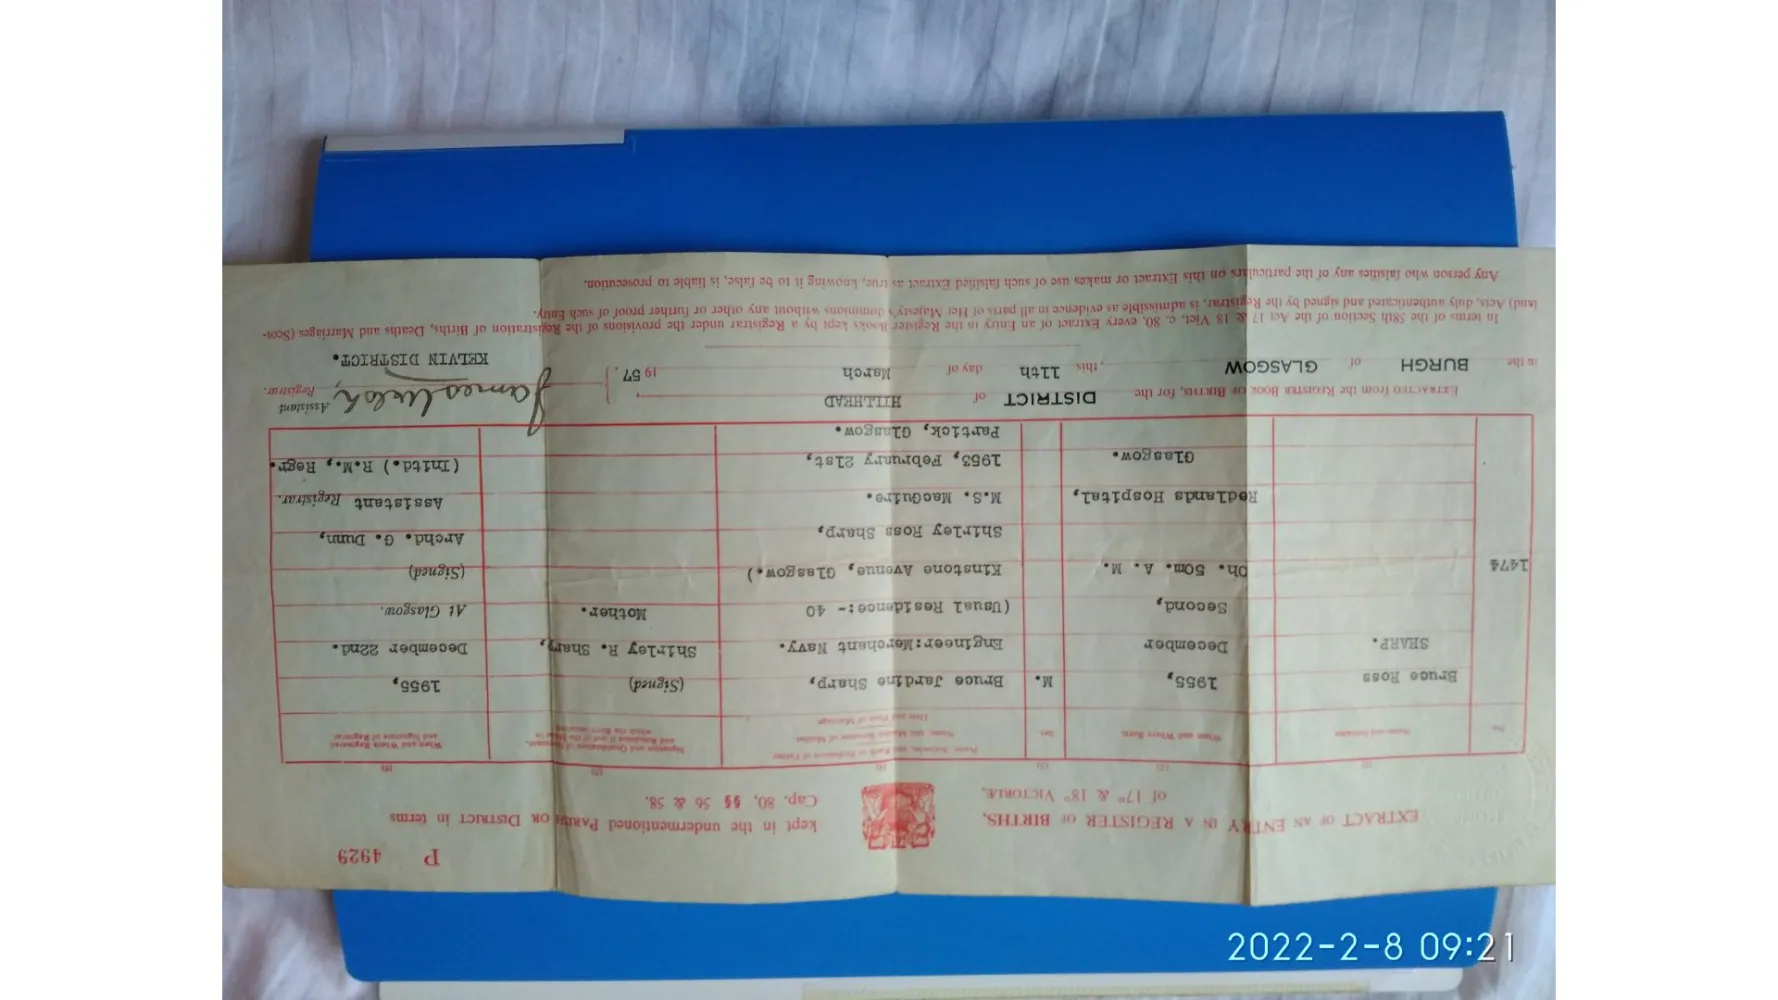 P 4929
EXTRACT OF AN ENTRY IN A REGISTER OF BIRTHS,
of 17° & 18° VICTORIÆ,
kept in the undermentioned PARISH OR DISTRICT in terms
Cap. 80, §§ 56 & 58.
(1) (2) (3) (4) (5) (6)
No.
Name and Surname
When and Where Born
Sex
Name, Surname, and Rank or Profession of Father
Name, and Maiden Surname of Mother
Date and Place of Marriage
Signature and Qualification of Informant,
and Residence if out of the House in
which the Birth occurred
When and Where Registered
and Signature of Registrar
1474
Bruce Ross
SHARP.
1955,
December
Second,
0h. 50m. A. M.
Redlands Hospital,
Glasgow.
M.
Bruce Jardine Sharp,
Engineer:Merchant Navy.
(Usual Residence:- 40
Kinstone Avenue, Glasgow.)
Shirley Ross Sharp,
M.S. MacGuire.
1953, February 21st,
Partick, Glasgow.
(Signed)
Shirley R. Sharp,
Mother.
1955,
December 22nd.
At Glasgow.
(Signed)
Archd. G. Dunn,
Assistant Registrar.
(Initd.) R.M., Regr.
EXTRACTED from the REGISTER BOOK OF BIRTHS, for the DISTRICT of HILLHEAD
in the BURGH of GLASGOW , this 11th day of March 1957.
James Welsh,
Assistant
Registrar.
KELVIN DISTRICT.
In terms of the 58th Section of the Act 17 & 18 Vict. c. 80, every Extract of an Entry in the Register Books kept by a Registrar under the provisions of the Registration of Births, Deaths and Marriages (Scot-
land) Acts, duly authenticated and signed by the Registrar, is admissible as evidence in all parts of Her Majesty's dominions without any other or further proof of such Entry.
Any person who falsifies any of the particulars on this Extract or makes use of such falsified Extract as true, knowing it to be false, is liable to prosecution.
2022-2-8 09:21